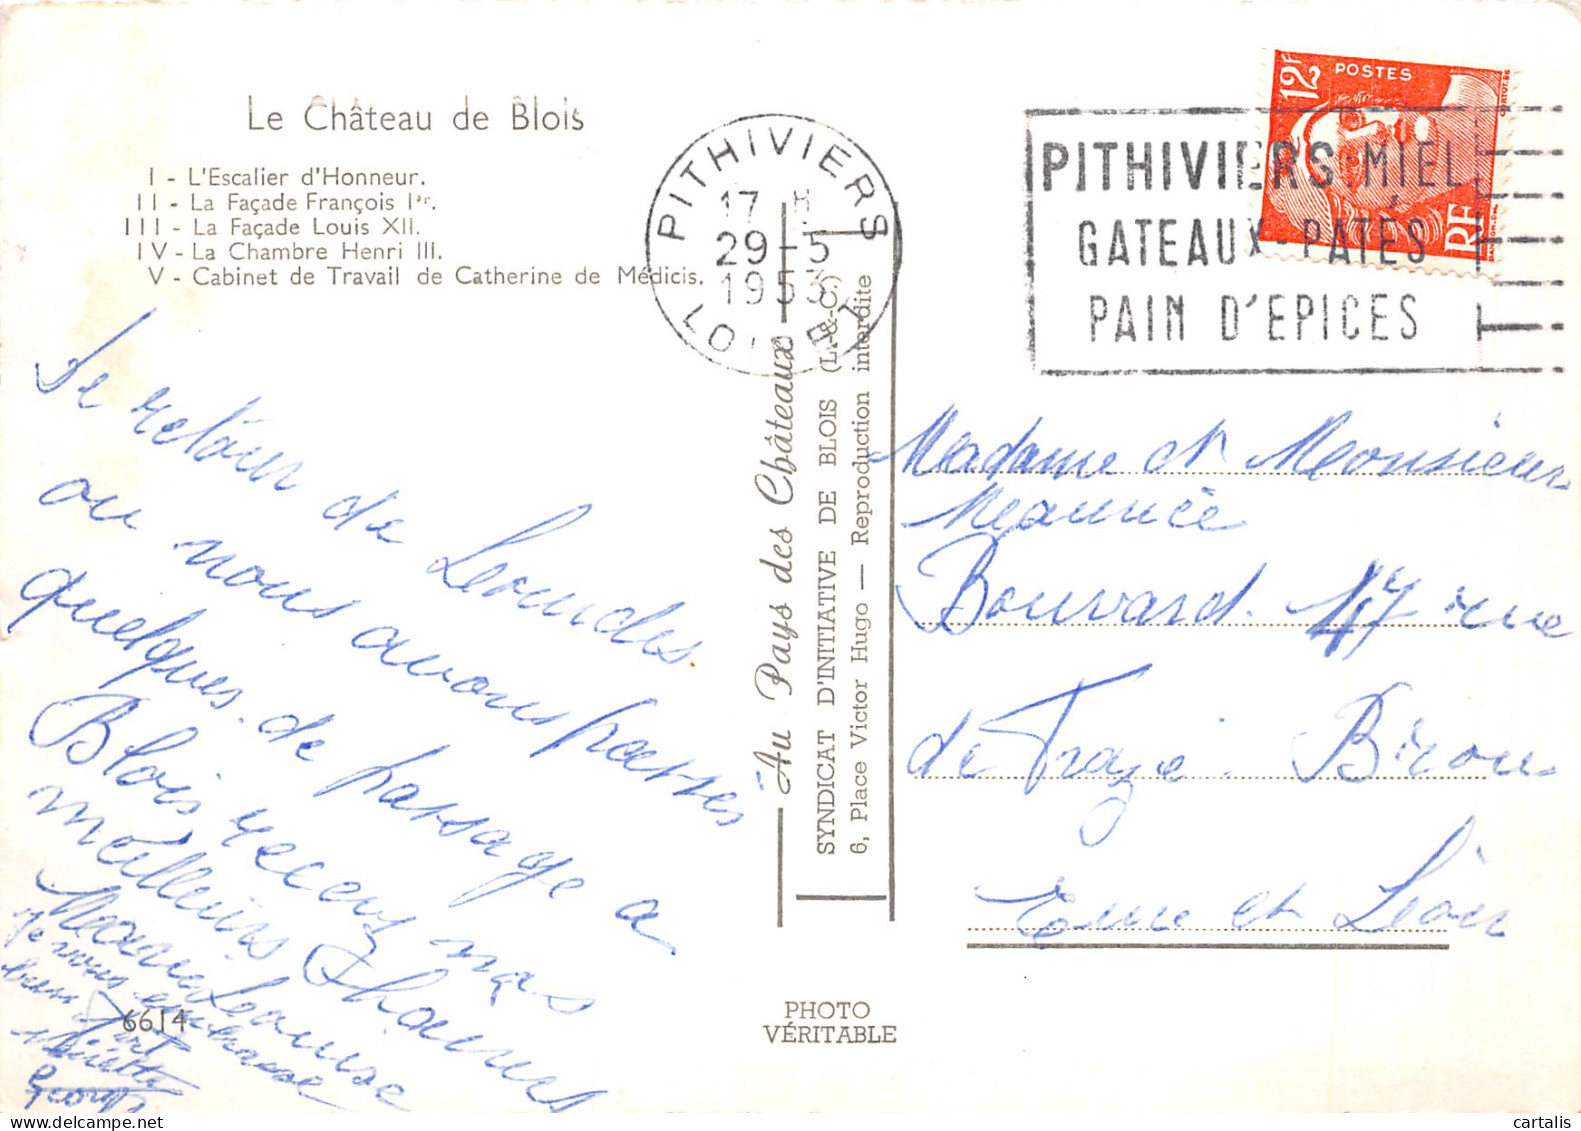 Le Château de Blois
I - L'Escalier d'Honneur.
II - La Façade François Ier.
III - La Façade Louis XII.
IV - La Chambre Henri III.
V - Cabinet de Travail de Catherine de Médicis.
PITHIVIERS
17 H
29-5
1953
LOIRET
12F
POSTES
RF
PITHIVIERS MIEL
GATEAUX-PATÉS
PAIN D'EPICES
Au Pays des Châteaux
SYNDICAT D'INITIATIVE DE BLOIS (L.-&-C.)
6, Place Victor Hugo — Reproduction interdite
PHOTO
VÉRITABLE
6614
de retour de
ou nous avons passés
quelques de passage a
Blois recevez mes
meilleurs
Je vous embrasse
bien fort
Madame et Monsieur
Maurice
Bouvard. 47 rue
de Bron
et
cartalis
delcampe.net